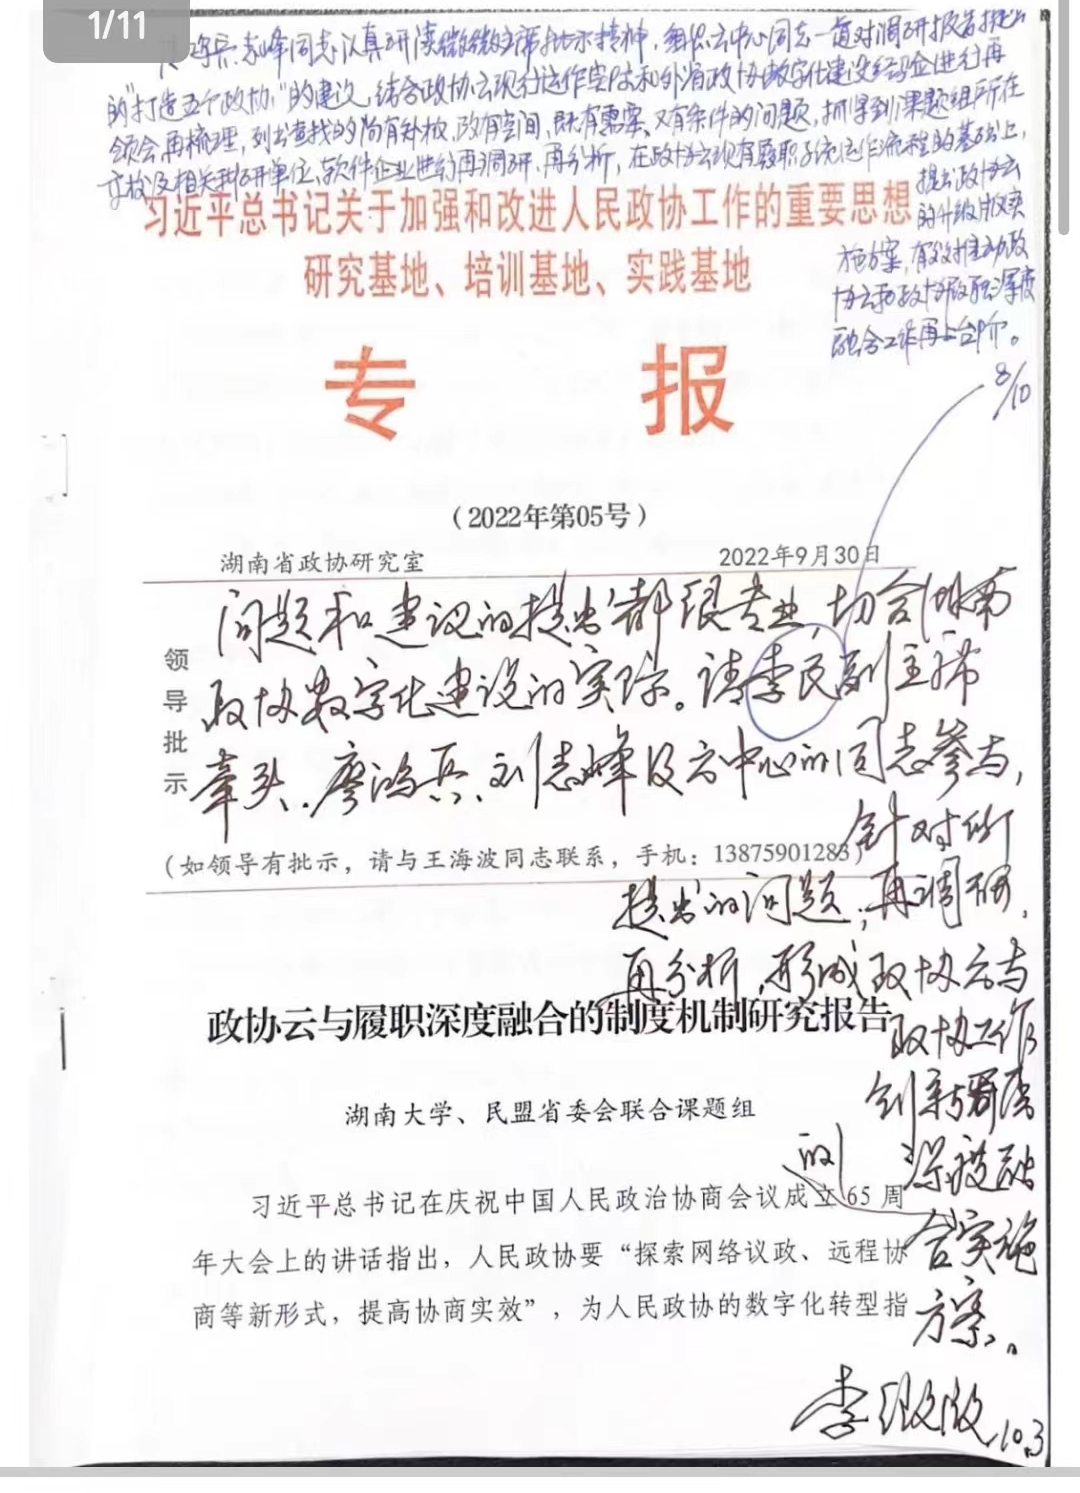 1/11
鸿兵、志峰同志:认真研读微微主席批示精神,组织云中心同志一道对调研报告提出
的“打造五个政协”的建议,结合政协云现行运作实际和外省政协数字化建设经验进行再
领会、再梳理,列出查找的尚有补权、改有空间、既有需要、又有条件的问题,抓早到课题组所在
高校及相关科研单位、软件企业进行再调研、再分析,在政协云现有履职系统运作流程的基础上,
提出政协云
的升级版实
施方案,有效推动政
协云和政协履职深度
融合工作再上台阶。
8/10
习近平总书记关于加强和改进人民政协工作的重要思想
研究基地、培训基地、实践基地
专 报
(2022年第05号)
湖南省政协研究室 2022年9月30日
领导批示
问题和建议的提出都很专业,切合湖南
政协数字化建设的实际。请李民副主席
牵头,廖鸿兵、刘志峰及云中心的同志参与,
针对所
提出的问题,再调研,
再分析,形成政协云与
政协工作
创新
深度融
合的实施
方案。
李微微 10.3
(如领导有批示,请与王海波同志联系,手机:13875901283)
政协云与履职深度融合的制度机制研究报告
湖南大学、民盟省委会联合课题组
习近平总书记在庆祝中国人民政治协商会议成立 65 周
年大会上的讲话指出,人民政协要“探索网络议政、远程协
商等新形式,提高协商实效”,为人民政协的数字化转型指